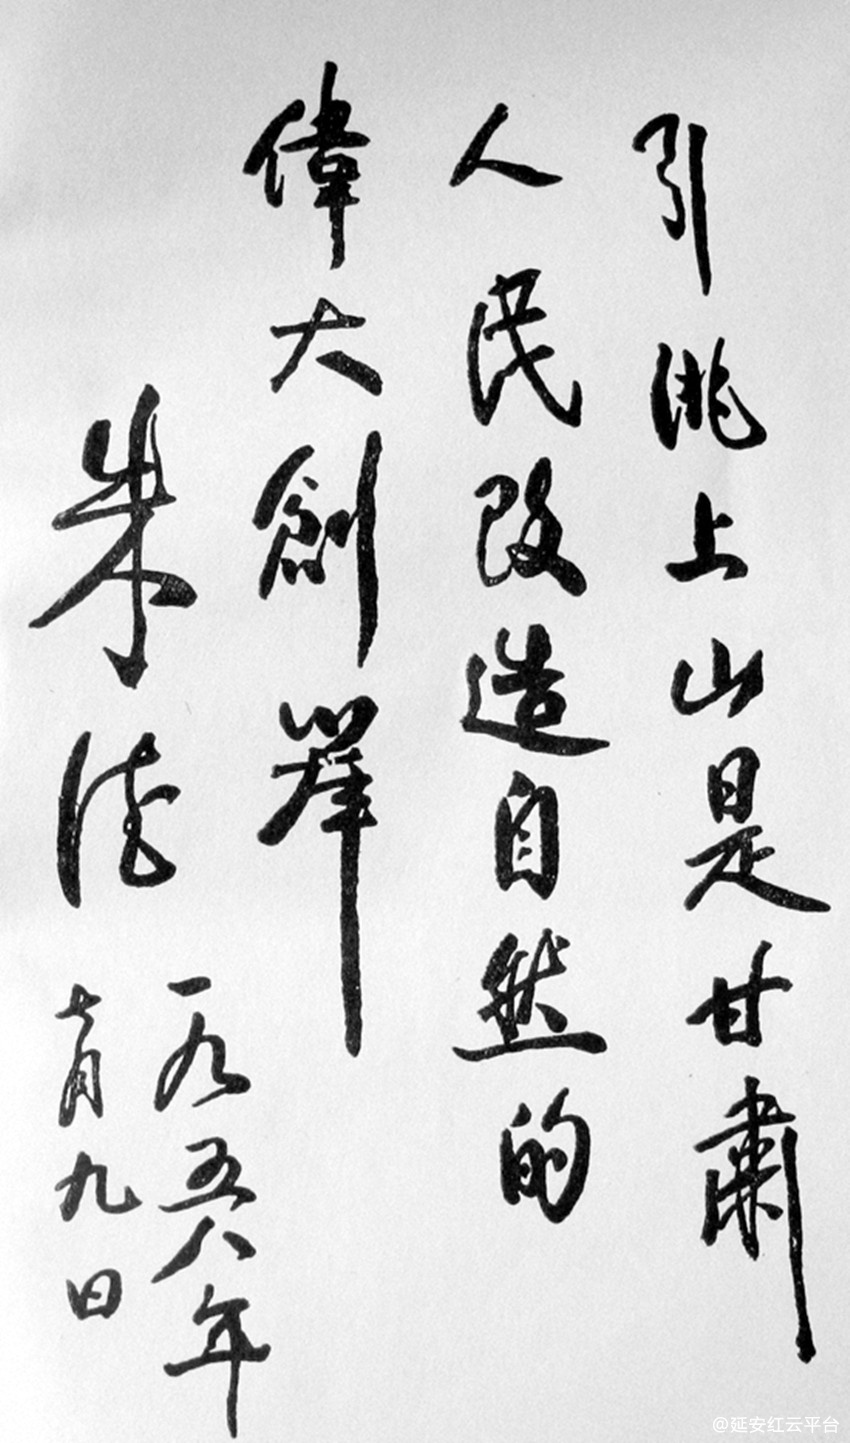 引洮上山是甘肅
人民改造自然的
偉大創舉
朱德
一九五八年
七月九日
@延安红云平台